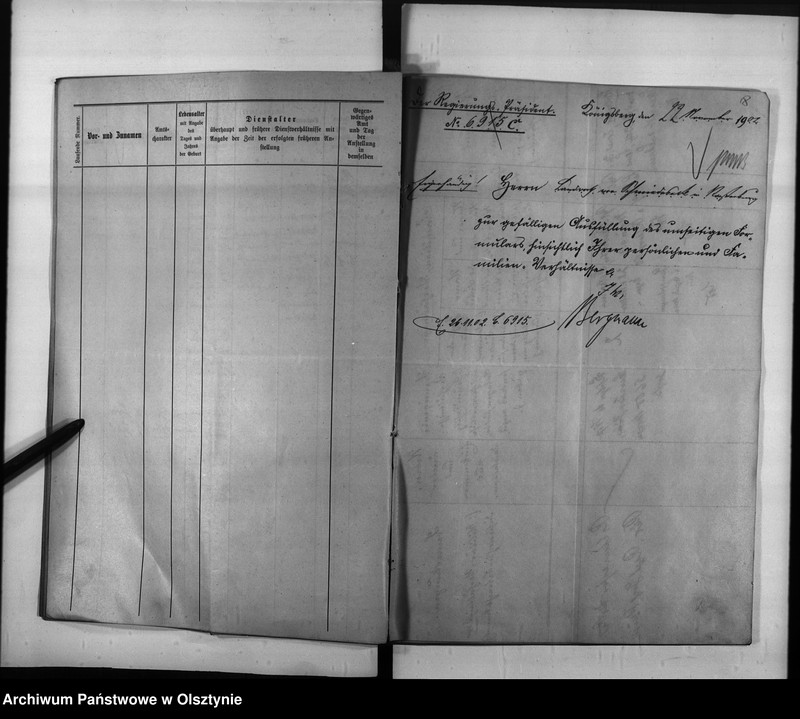 Laufende Nummer.
Vor- und Zunamen
Amts-
charakter
Lebensalter
mit Angabe
des
Tages und
Jahres
der Geburt
Dienstalter
überhaupt und frühere Dienstverhältnisse mit
Angabe der Zeit der erfolgten früheren An-
stellung
Gegen-
wärtiges
Amt
und Tag
der
Anstellung
in
demselben
8
Der Regierungs-Präsident.
Königsberg, den 22 November 1902
No 6915 C.
Herrn Landrat von in Rastenburg
zur gefälligen Ausfüllung des umseitigen For-
mulars hinsichtlich Ihrer persönlichen und Fa-
milien-Verhältnisse
E. 26.11.02. C 6915.
Archiwum Państwowe w Olsztynie